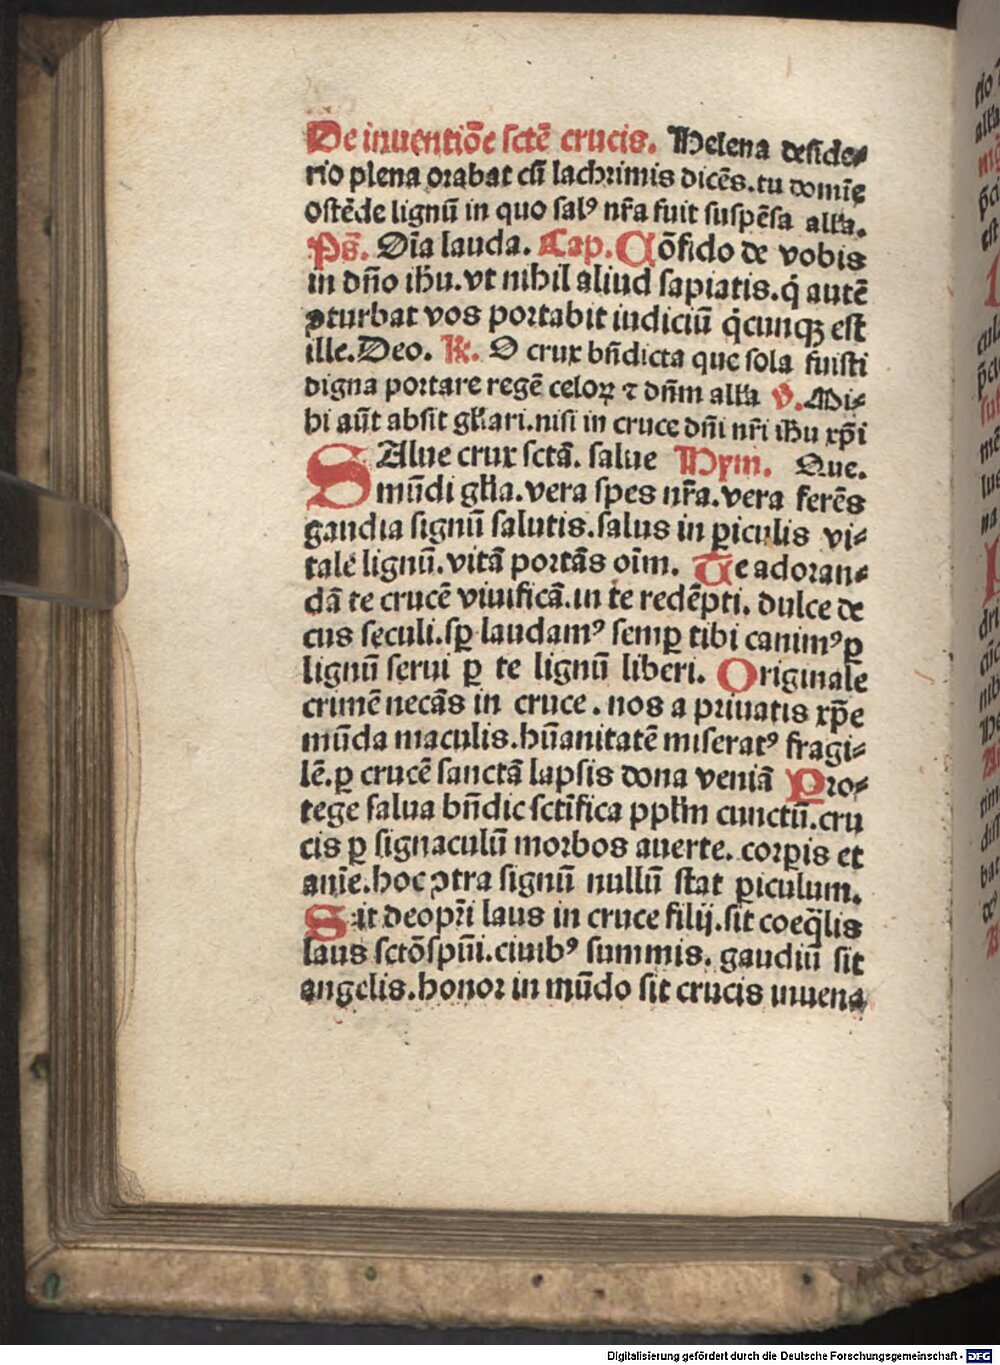 De inuentiōe sctē crucis. Helena deside⸗
rio plena orabat cū lachrimis dicēs. tu domīe
ostēde lignū in quo salꝰ nr̄a fuit suspēsa all'a.
Ps̄. Dīa lauda. Cap. Cōfido de vobis
in dn̄o ihu. vt nihil aliud sapiatis. q̇ autē
ↄturbat vos portabit iudiciū q̇cunqꝫ est
ille. Deo. R. O crux bn̄dicta que sola fuisti
digna portare regē celoꝝ ⁊ dn̄m all'a V. Mi⸗
hi aūt absit gl'ari. nisi in cruce dn̄i nr̄i ihu xp̄i
SAlue crux sctā. salue Hym. Que.
mūdi gl'ia. vera spes nr̄a. vera ferēs
gaudia signū salutis. salus in ꝑiculis vi⸗
tale lignū. vitā portās oīm. Te adoran⸗
dā te crucē viuificā. in te redēpti. dulce de
cus seculi. sꝑ laudamꝰ semꝑ tibi canimꝰ ꝑ
lignū serui ꝑ te lignū liberi. Originale
crimē necās in cruce. nos a priuatis xp̄e
mūda maculis. hūanitatē miseratꝰ fragi⸗
lē. ꝑ crucē sanctā lapsis dona veniā Pro⸗
tege salua bn̄dic sctīfica ppl'm cunctū. cru
cis ꝑ signaculū morbos auerte. corꝑis et
anīe. hoc ↄtra signū nullū stat ꝑiculum.
Sit deo pr̄i laus in cruce filij. sit coeq̄lis
laus sctō spūi. ciuibꝰ summis. gaudiū sit
angelis. honor in mūdo sit crucis inuena
Digitalisierung gefördert durch die Deutsche Forschungsgemeinschaft - DFG